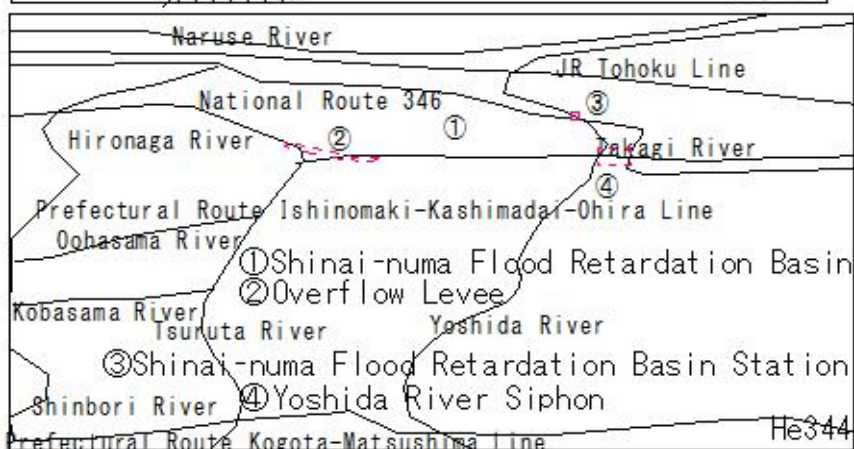 Naruse River
JR Tohoku Line
National Route 346
③
①
②
Hironaga River
Takagi River
④
Prefectural Route Ishinomaki-Kashimadai-Ohira Line
Oohasama River
①Shinai-numa Flood Retardation Basin
②Overflow Levee
Kobasama River
Tsuruta River
Yoshida River
③Shinai-numa Flood Retardation Basin Station
④Yoshida River Siphon
Shinbori River
He344
Prefectural Route Kogota-Matsushima Line